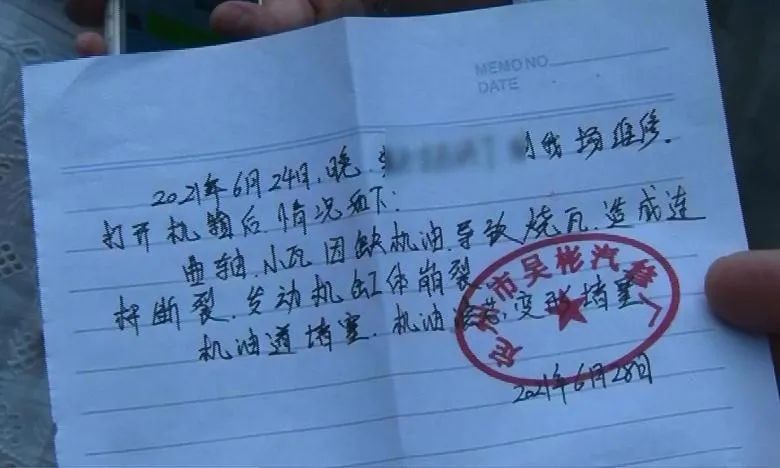 MEMO NO
DATE
2021年6月24日,晚,到我场维修.
打开机箱后情况如下:
曲轴.小瓦因缺机油.导致烧瓦.造成连
杆断裂.发动机缸体崩裂
机油道堵塞.机油滤芯,变形堵塞
市吴彬汽修厂
2021年6月28日